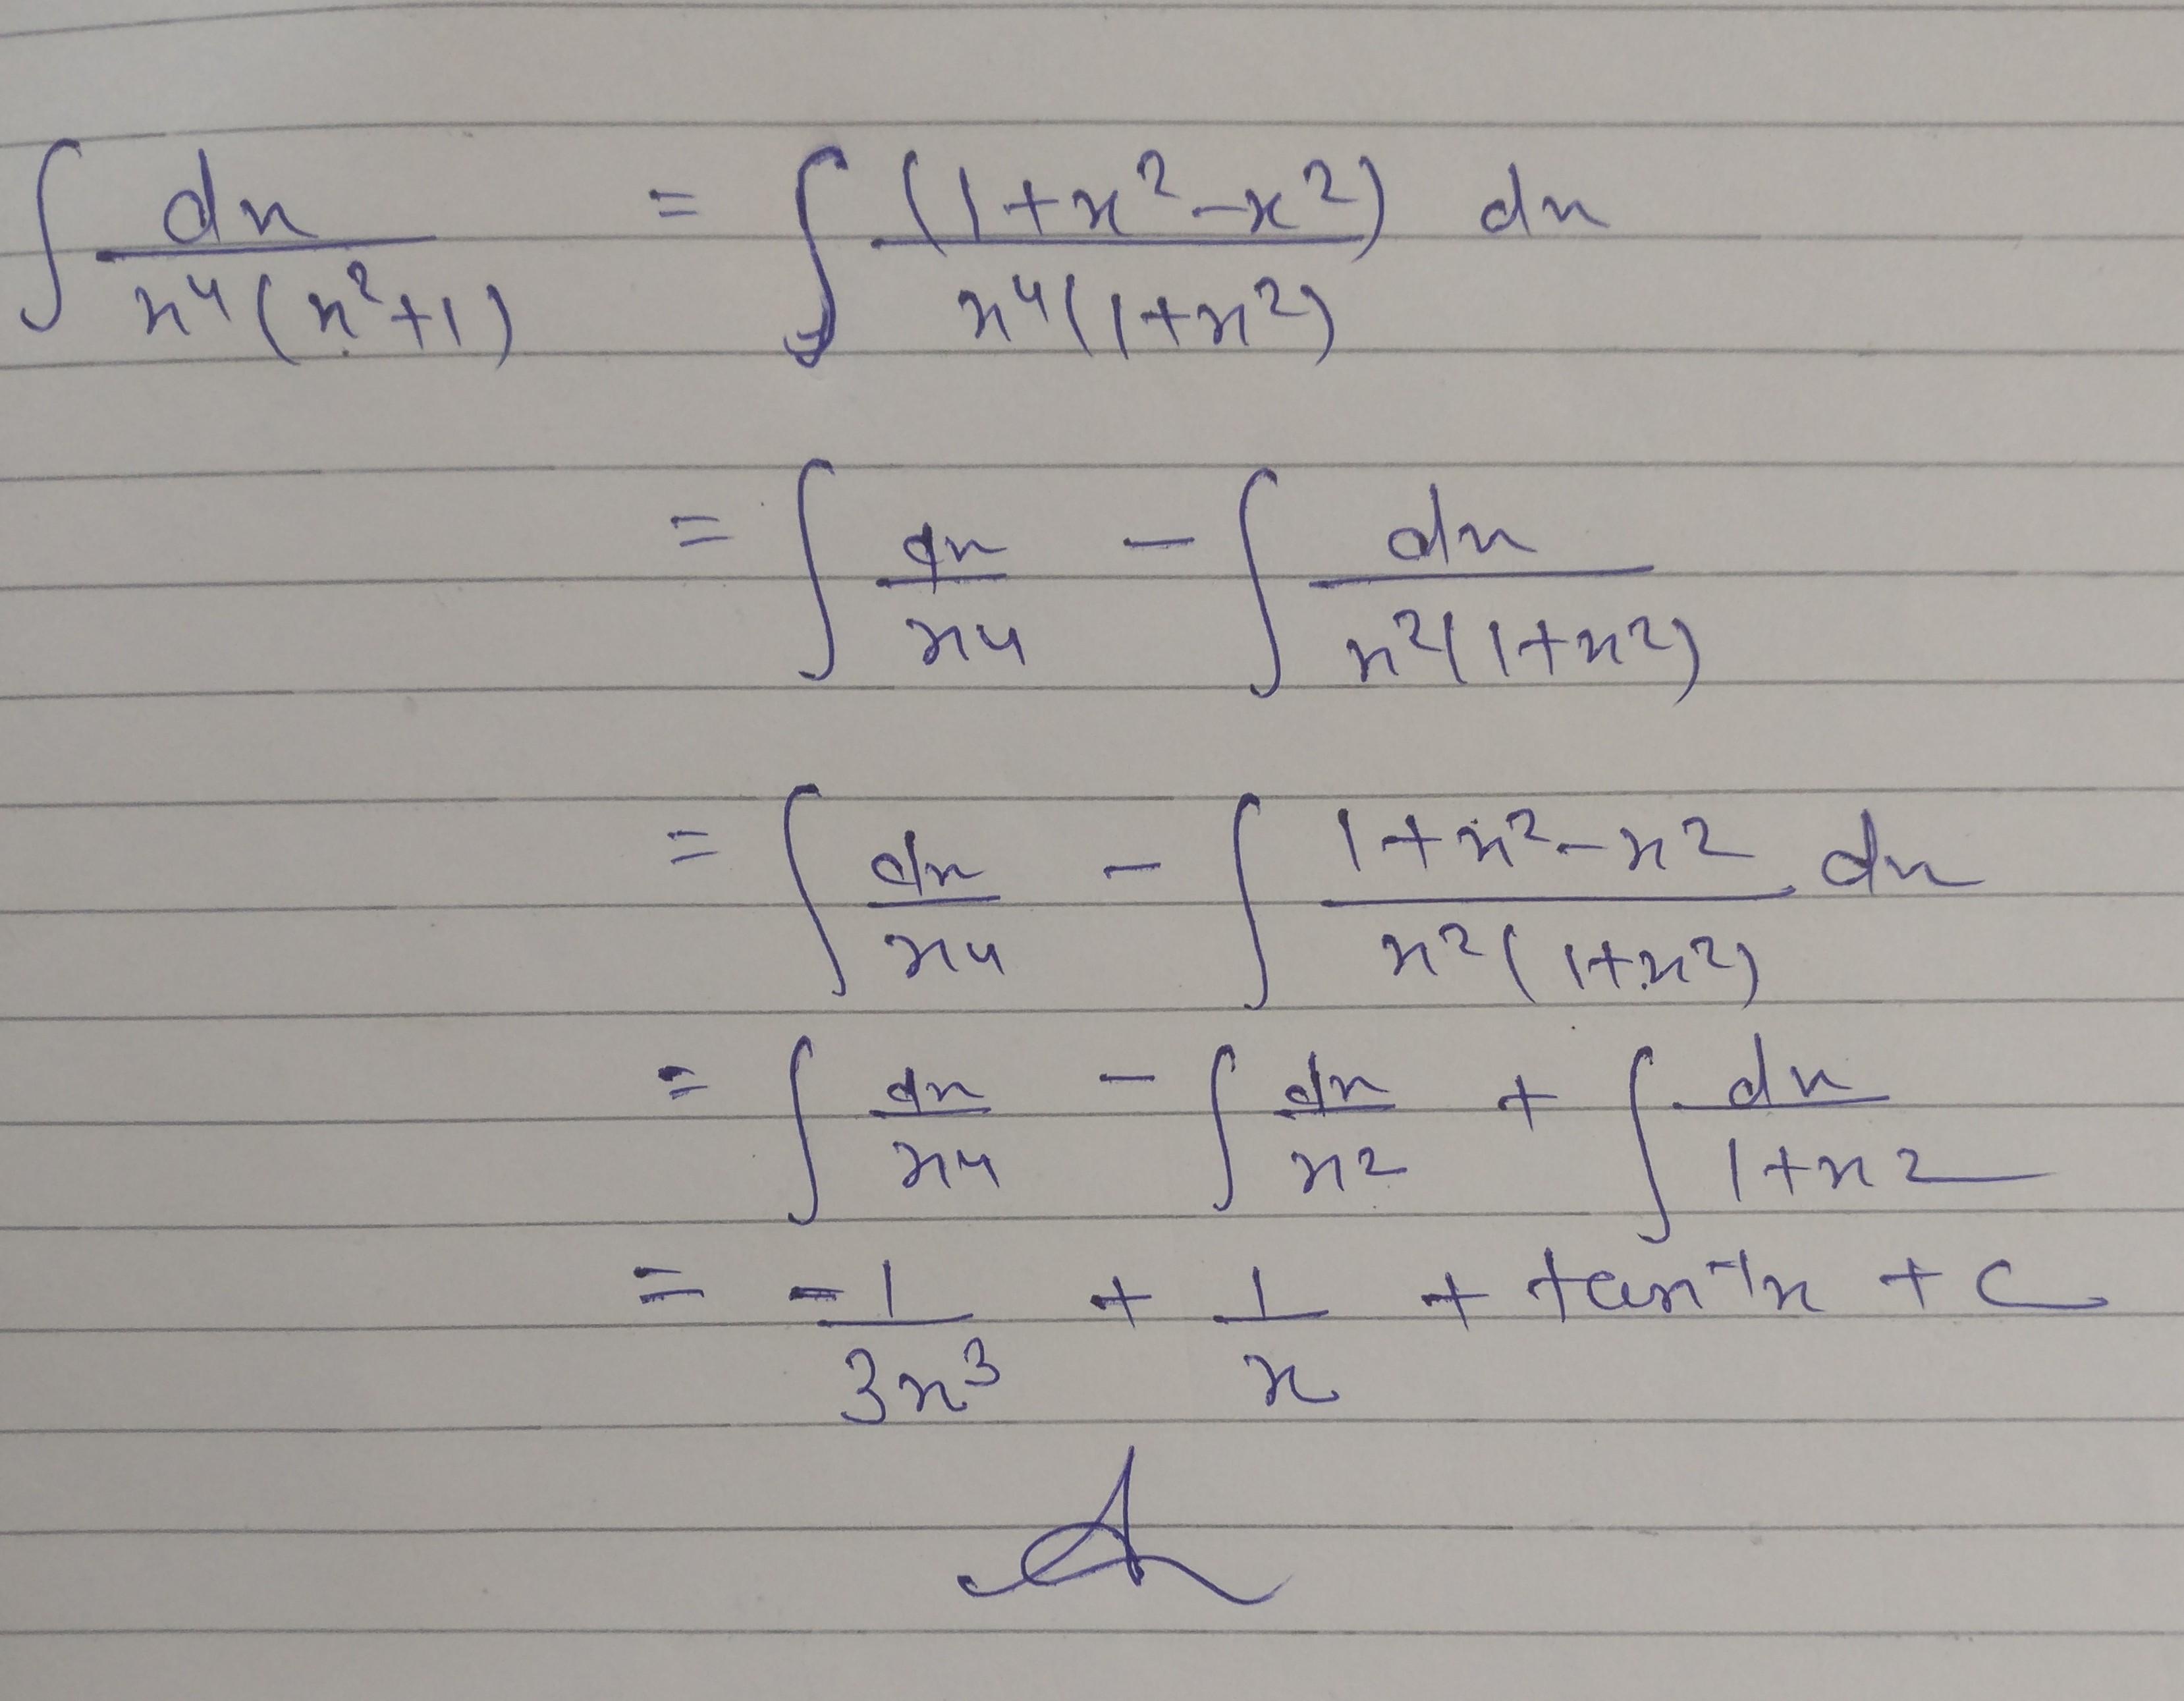 ∫ dx/(x⁴(x²+1)) = ∫ (1+x²-x²)/(x⁴(1+x²)) dx
= ∫ dx/x⁴ - ∫ dx/(x²(1+x²))
= ∫ dx/x⁴ - ∫ (1+x²-x²)/(x²(1+x²)) dx
= ∫ dx/x⁴ - ∫ dx/x² + ∫ dx/(1+x²)
= -1/(3x³) + 1/x + tan⁻¹x + C